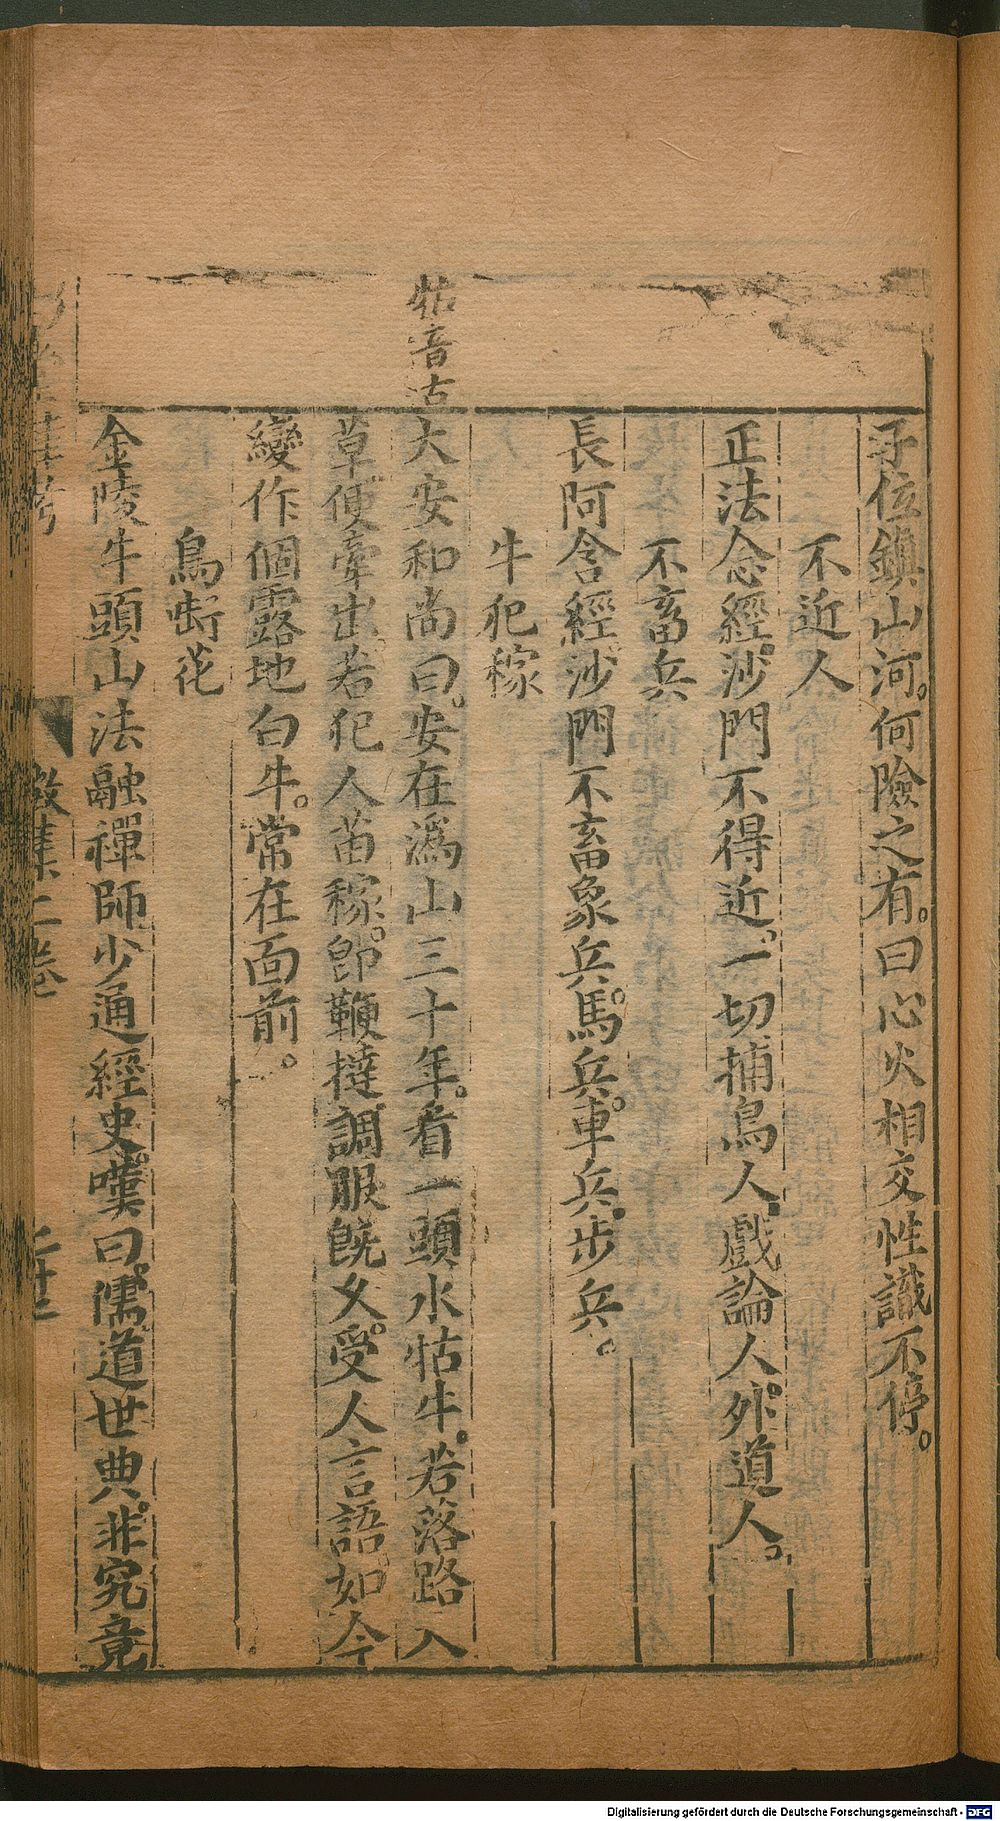 子位鎮山河。何險之有。曰心火相交性識不停。
不近人
正法念經。沙門不得近。一切捕鳥人。戲論人。外道人。
不畜兵
長阿含經。沙門不畜象兵。馬兵。車兵。步兵。
牛犯稼
牯音古
大安和尚曰。安在溈山三十年。看一頭水牯牛。若落路入
草便牽出。若犯人苗稼。即鞭撻調服旣久。受人言語如今
變作個露地白牛。常在面前。
鳥啣花
金陵牛頭山法融禪師。少通經史。嘆曰。儒道世典。非究竟
集二卷
Digitalisierung gefördert durch die Deutsche Forschungsgemeinschaft - DFG